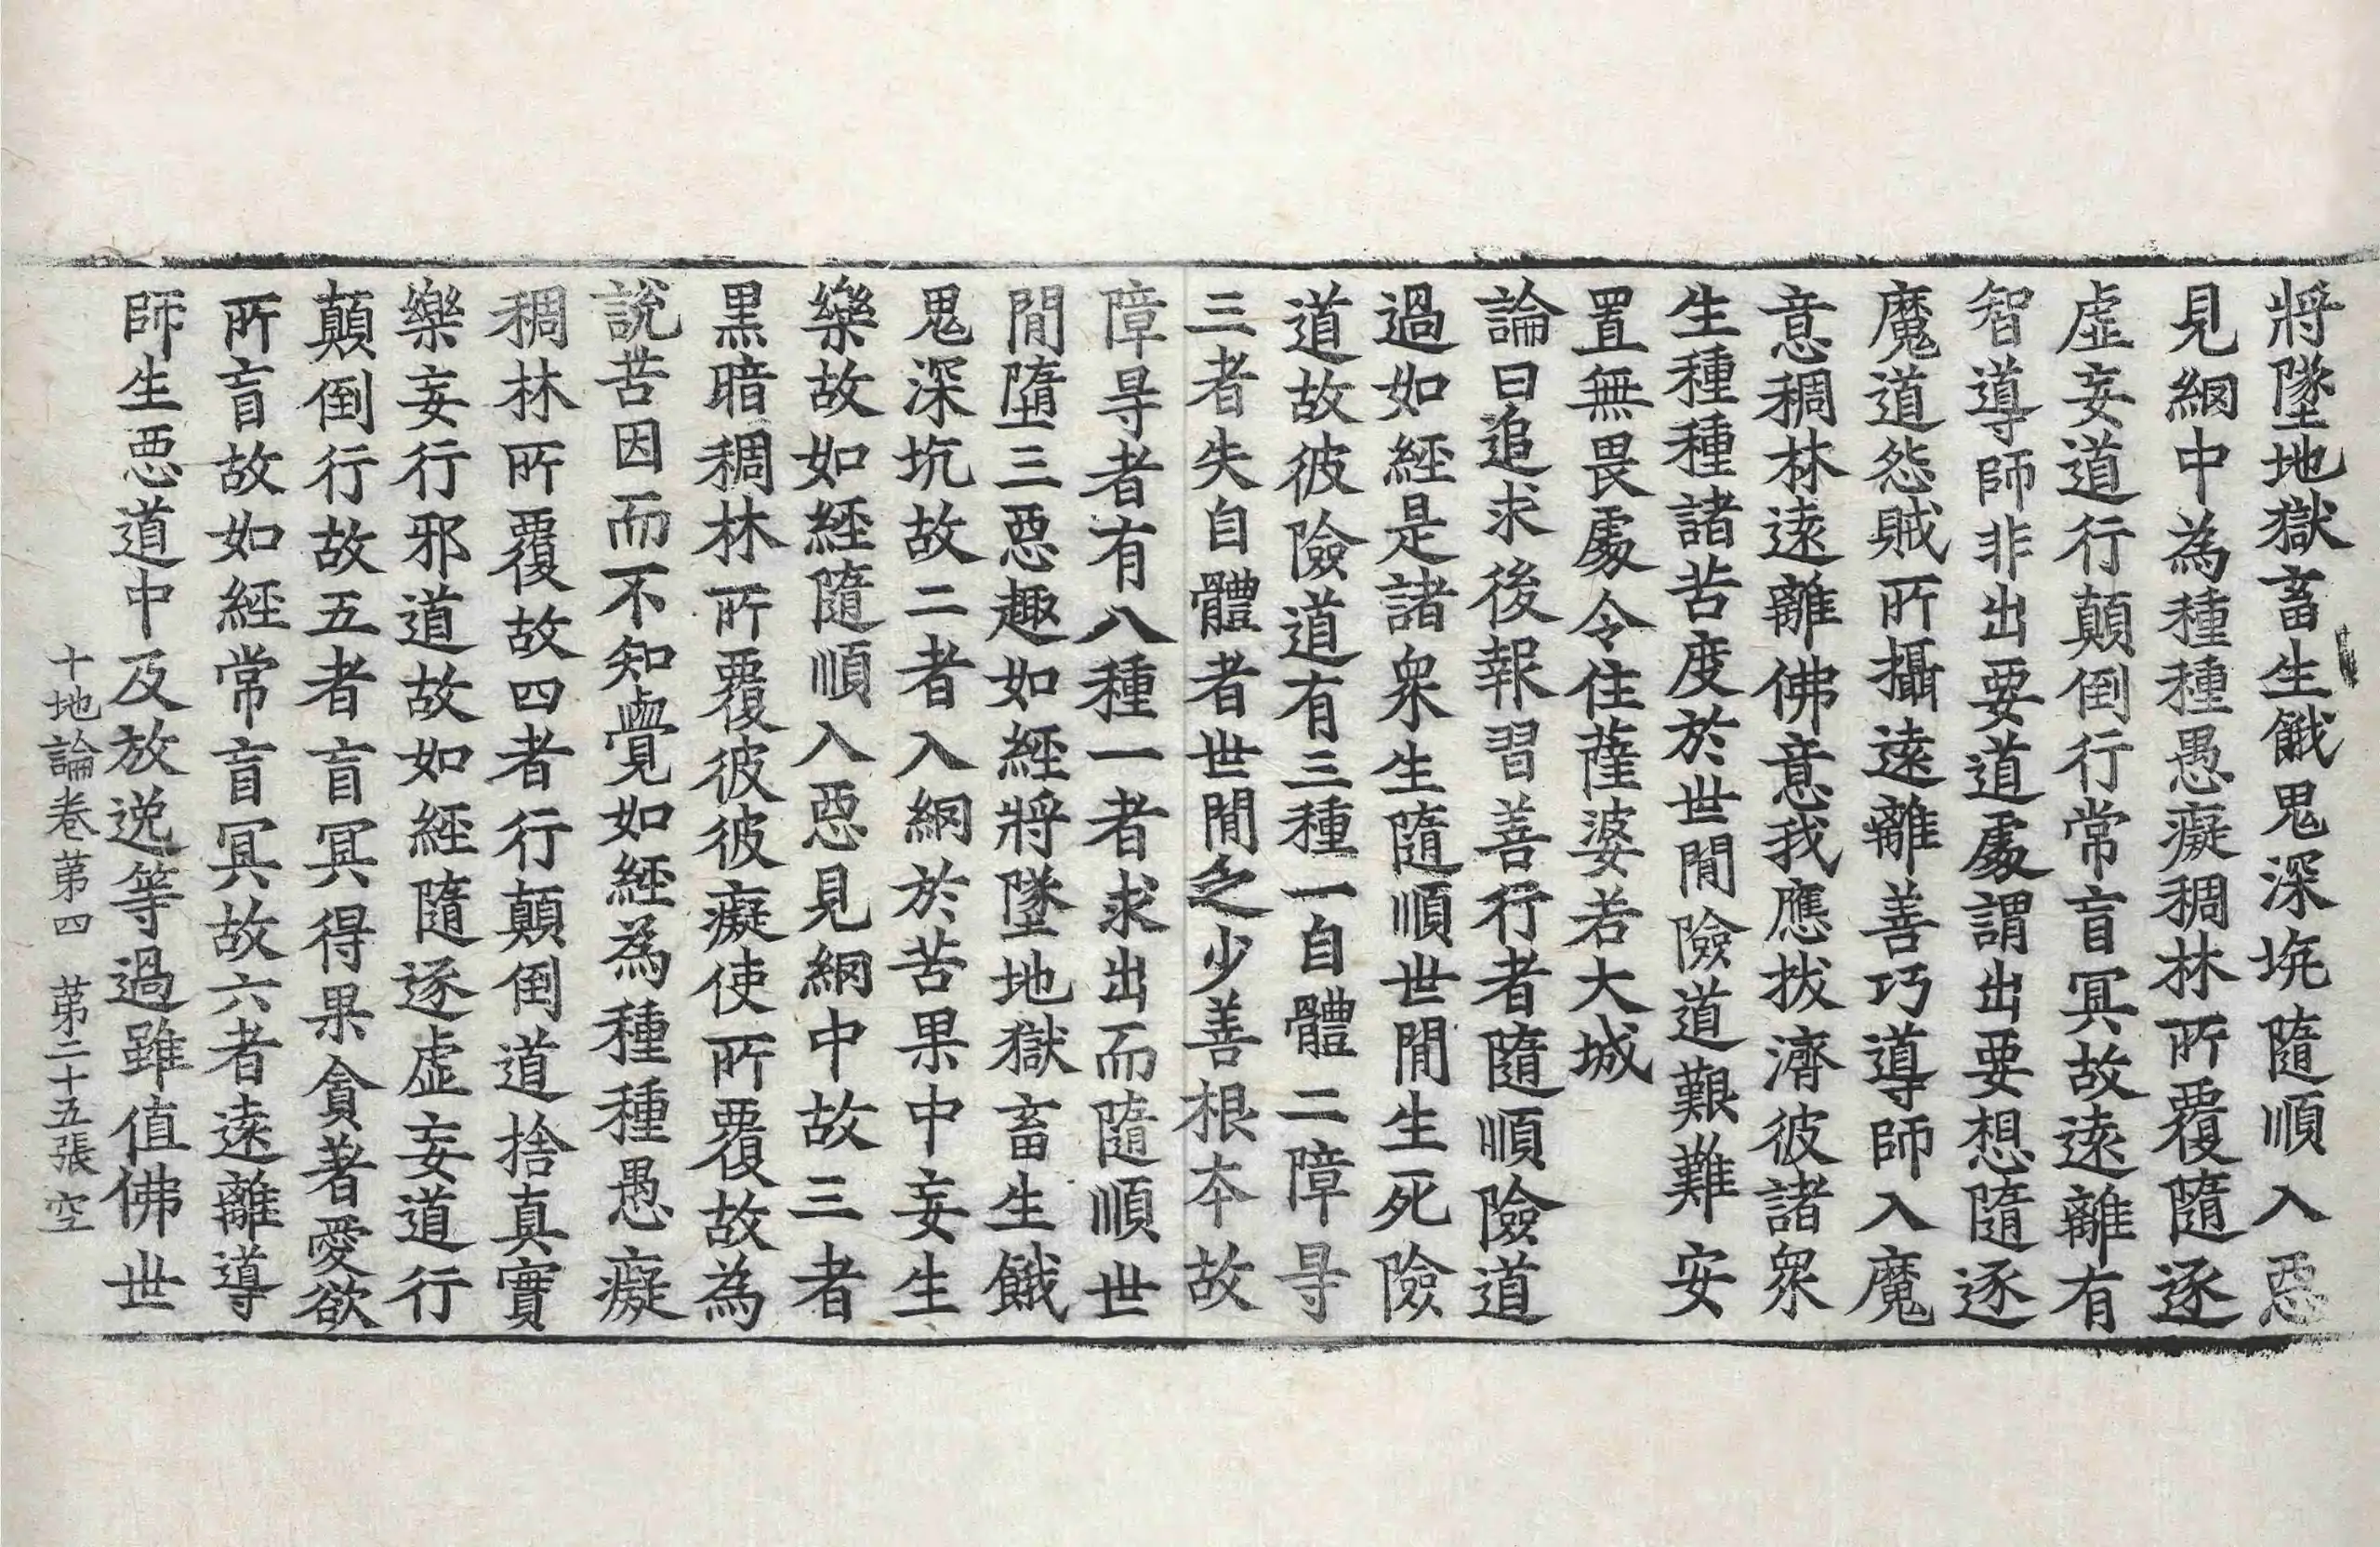 將墜地獄畜生餓鬼深坑隨順入惡
見網中為種種愚癡稠林所覆隨逐
虛妄道行顛倒行常盲冥故遠離有
智導師非出要道處謂出要想隨逐
魔道怨賊所攝遠離善巧導師入魔
意稠林遠離佛意我應拔濟彼諸眾
生種種諸苦度於世間險道艱難安
置無畏處令住薩婆若大城
論曰追求後報習善行者隨順險道
過如經是諸眾生隨順世間生死險
道故彼險道有三種一自體二障㝵
三者失自體者世間之少善根本故
障㝵者有八種一者求出而隨順世
間墮三惡趣如經將墜地獄畜生餓
鬼深坑故二者入網於苦果中妄生
樂故如經隨順入惡見網中故三者
黑暗稠林所覆彼彼癡使所覆故為
說苦因而不知覺如經為種種愚癡
稠林所覆故四者行顛倒道捨真實
樂妄行邪道故如經隨逐虛妄道行
顛倒行故五者盲冥得果貪著愛欲
所盲故如經常盲冥故六者遠離導
師生惡道中及放逸等過雖值佛世
十地論卷第四 第二十五張 空